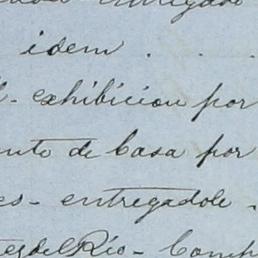 entregado
idem . . .
exhibicion por
nto de Casa por
es- entregadole.
del Rio- Comp